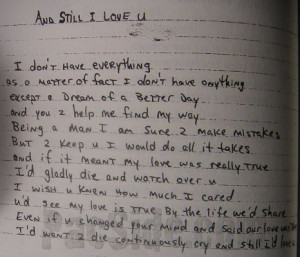 AND STILL I LOVE U
I DON'T HAVE EVERYTHING
as a matter of fact I don't have anything
except a Dream of a Better Day
and you 2 help me find my way
Being a man I am sure 2 make mistakes
But 2 keep u I would do all it takes
and if it meant my love was really true
I'd gladly die and watch over u
I wish u knew how much I cared
u'd see my love is true By the life we'd share
Even if u changed your mind and said our love
I'd want 2 die continuously cry and still I'd